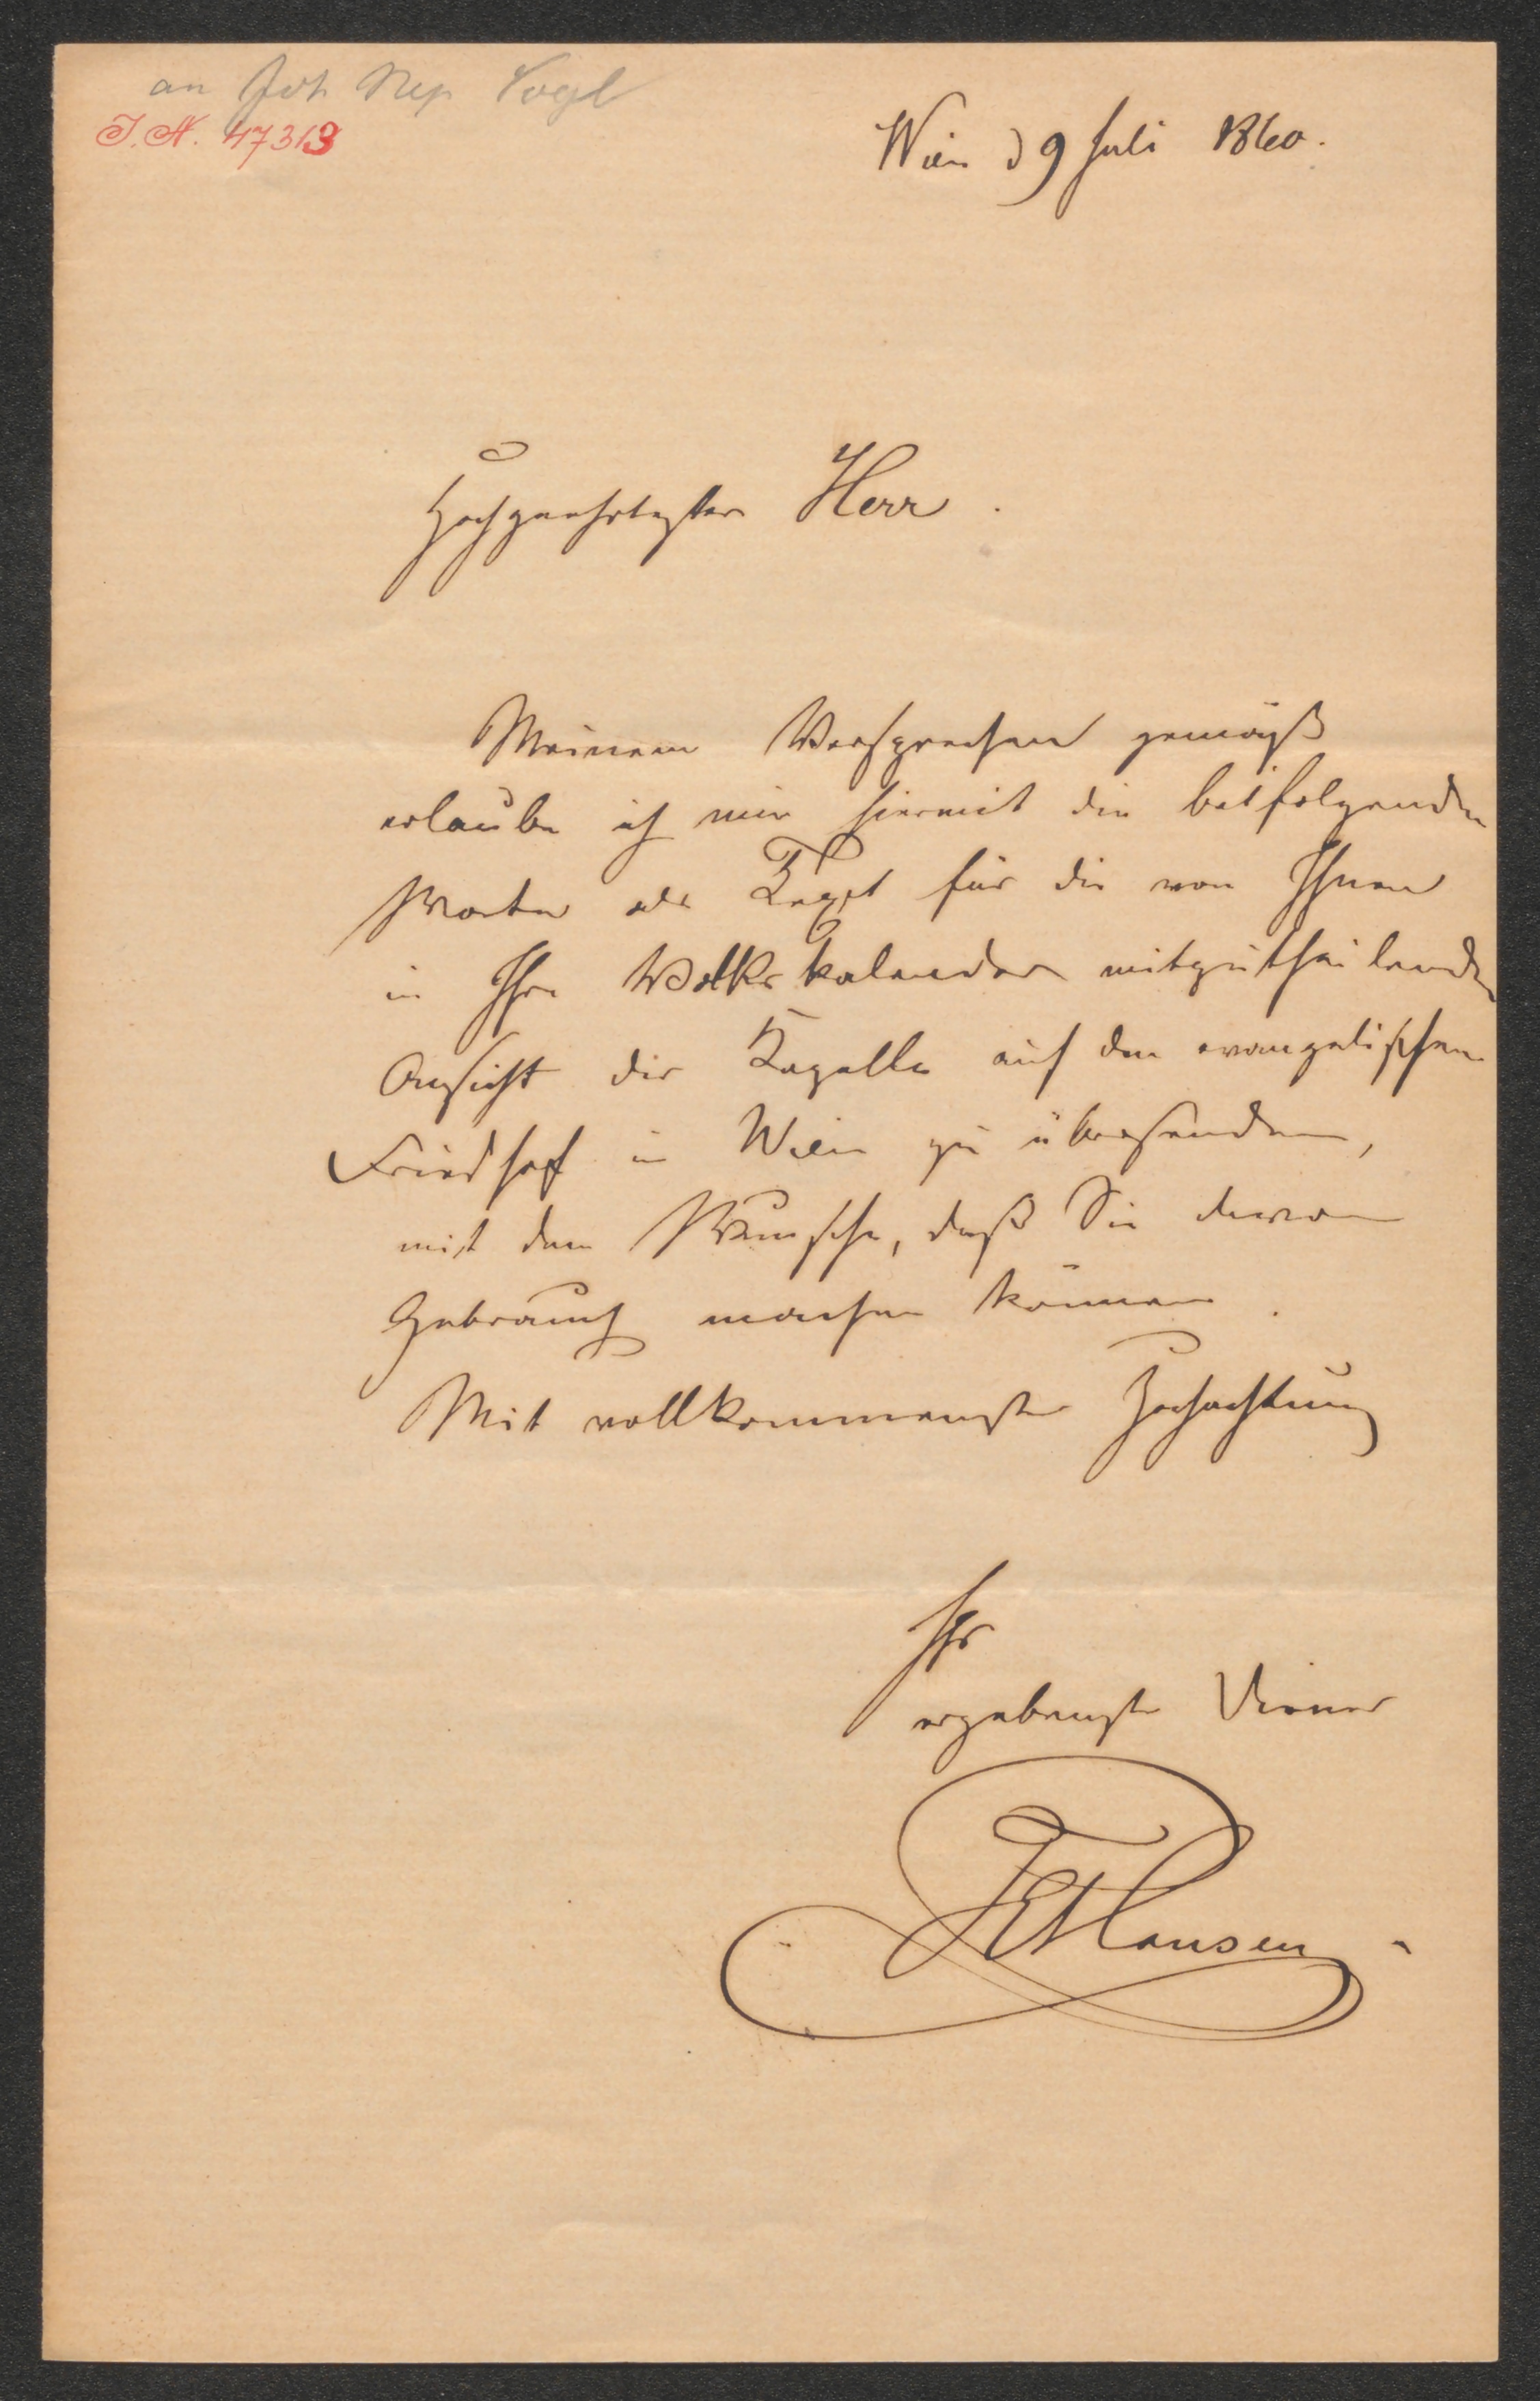 an Joh Nep Vogl
I.N. 47313
Wien d 9 Juli 1860.
Hochgeehrtester Herr.
Meinem Versprechen gemäß
erlaube ich mir hiermit die beifolgenden
Worte als Text für die von Ihnen
in Ihre Volkskalender mitzutheilende
Ansicht der Kapelle auf den evangelischen
Friedhof in Wien zu übersenden,
mit dem Wunsche, daß Sie davon
Gebrauch machen können.
Mit vollkommenster Hochachtung
Ihr
ergebenster Diener
THansen